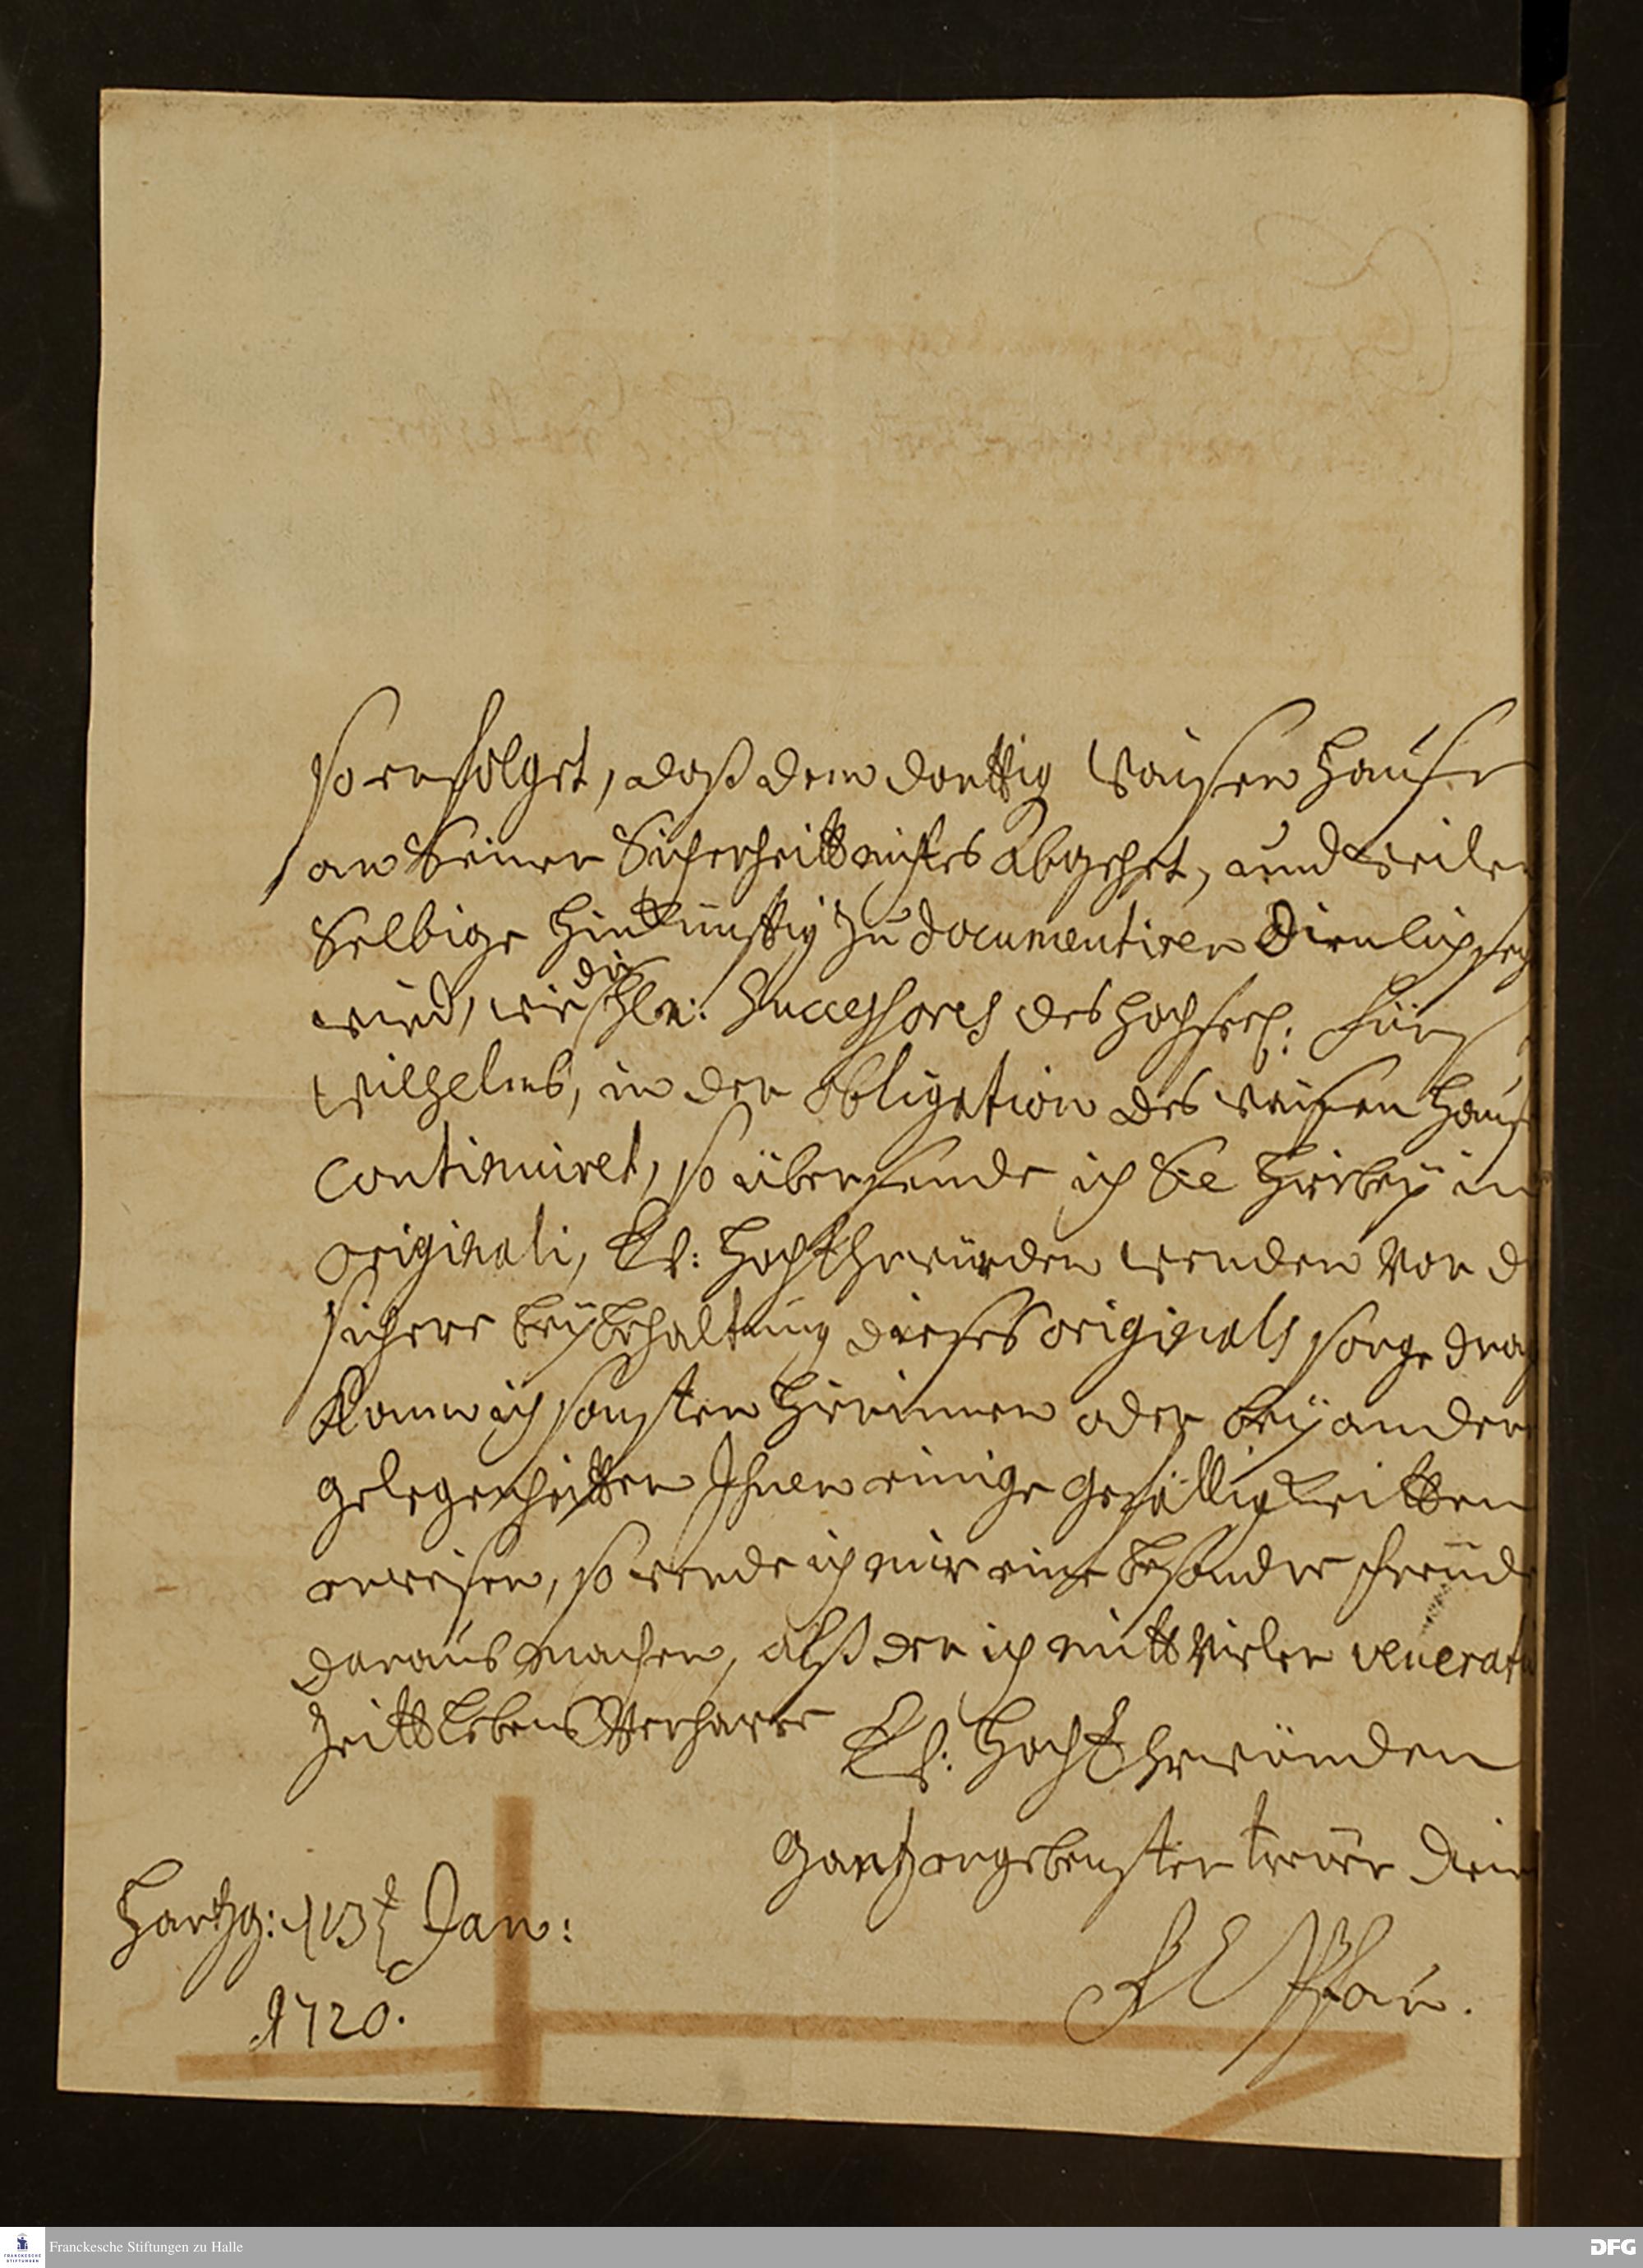 so erfolget, daß dem dorttig Waisen Hause
an Seiner Sicherheitt nichtes abgehet, und weilen
Selbige hinkünfftig zu documentiren Dienlich sey
wird, wie die Successores des hochseel: Fürst
Wilhelms, in der obligation des Waisen Hauß
Continuiret, so übersende ich Sie hierbeÿ in
originali, Ew: HochEhrwürden werden vor d
sichere beÿbehaltung dieses originals sorge drag
Kann ich sonsten hierinnen oder beÿ andern
gelegenheitten Ihnen einige gefälligkeitten
erweisen, so werde ich mir eine besondre freüde
daraus machen, alß der ich mitt vieler venerat
Zeitt lebens Verharre Ew: HochEhrwürden
gantz ergebenster treüer Dien
Hartzg: d 13t Jan:
1720.
Pfau.
Franckesche Stiftungen zu Halle
FRANCKESCHE STIFTUNGEN
DFG